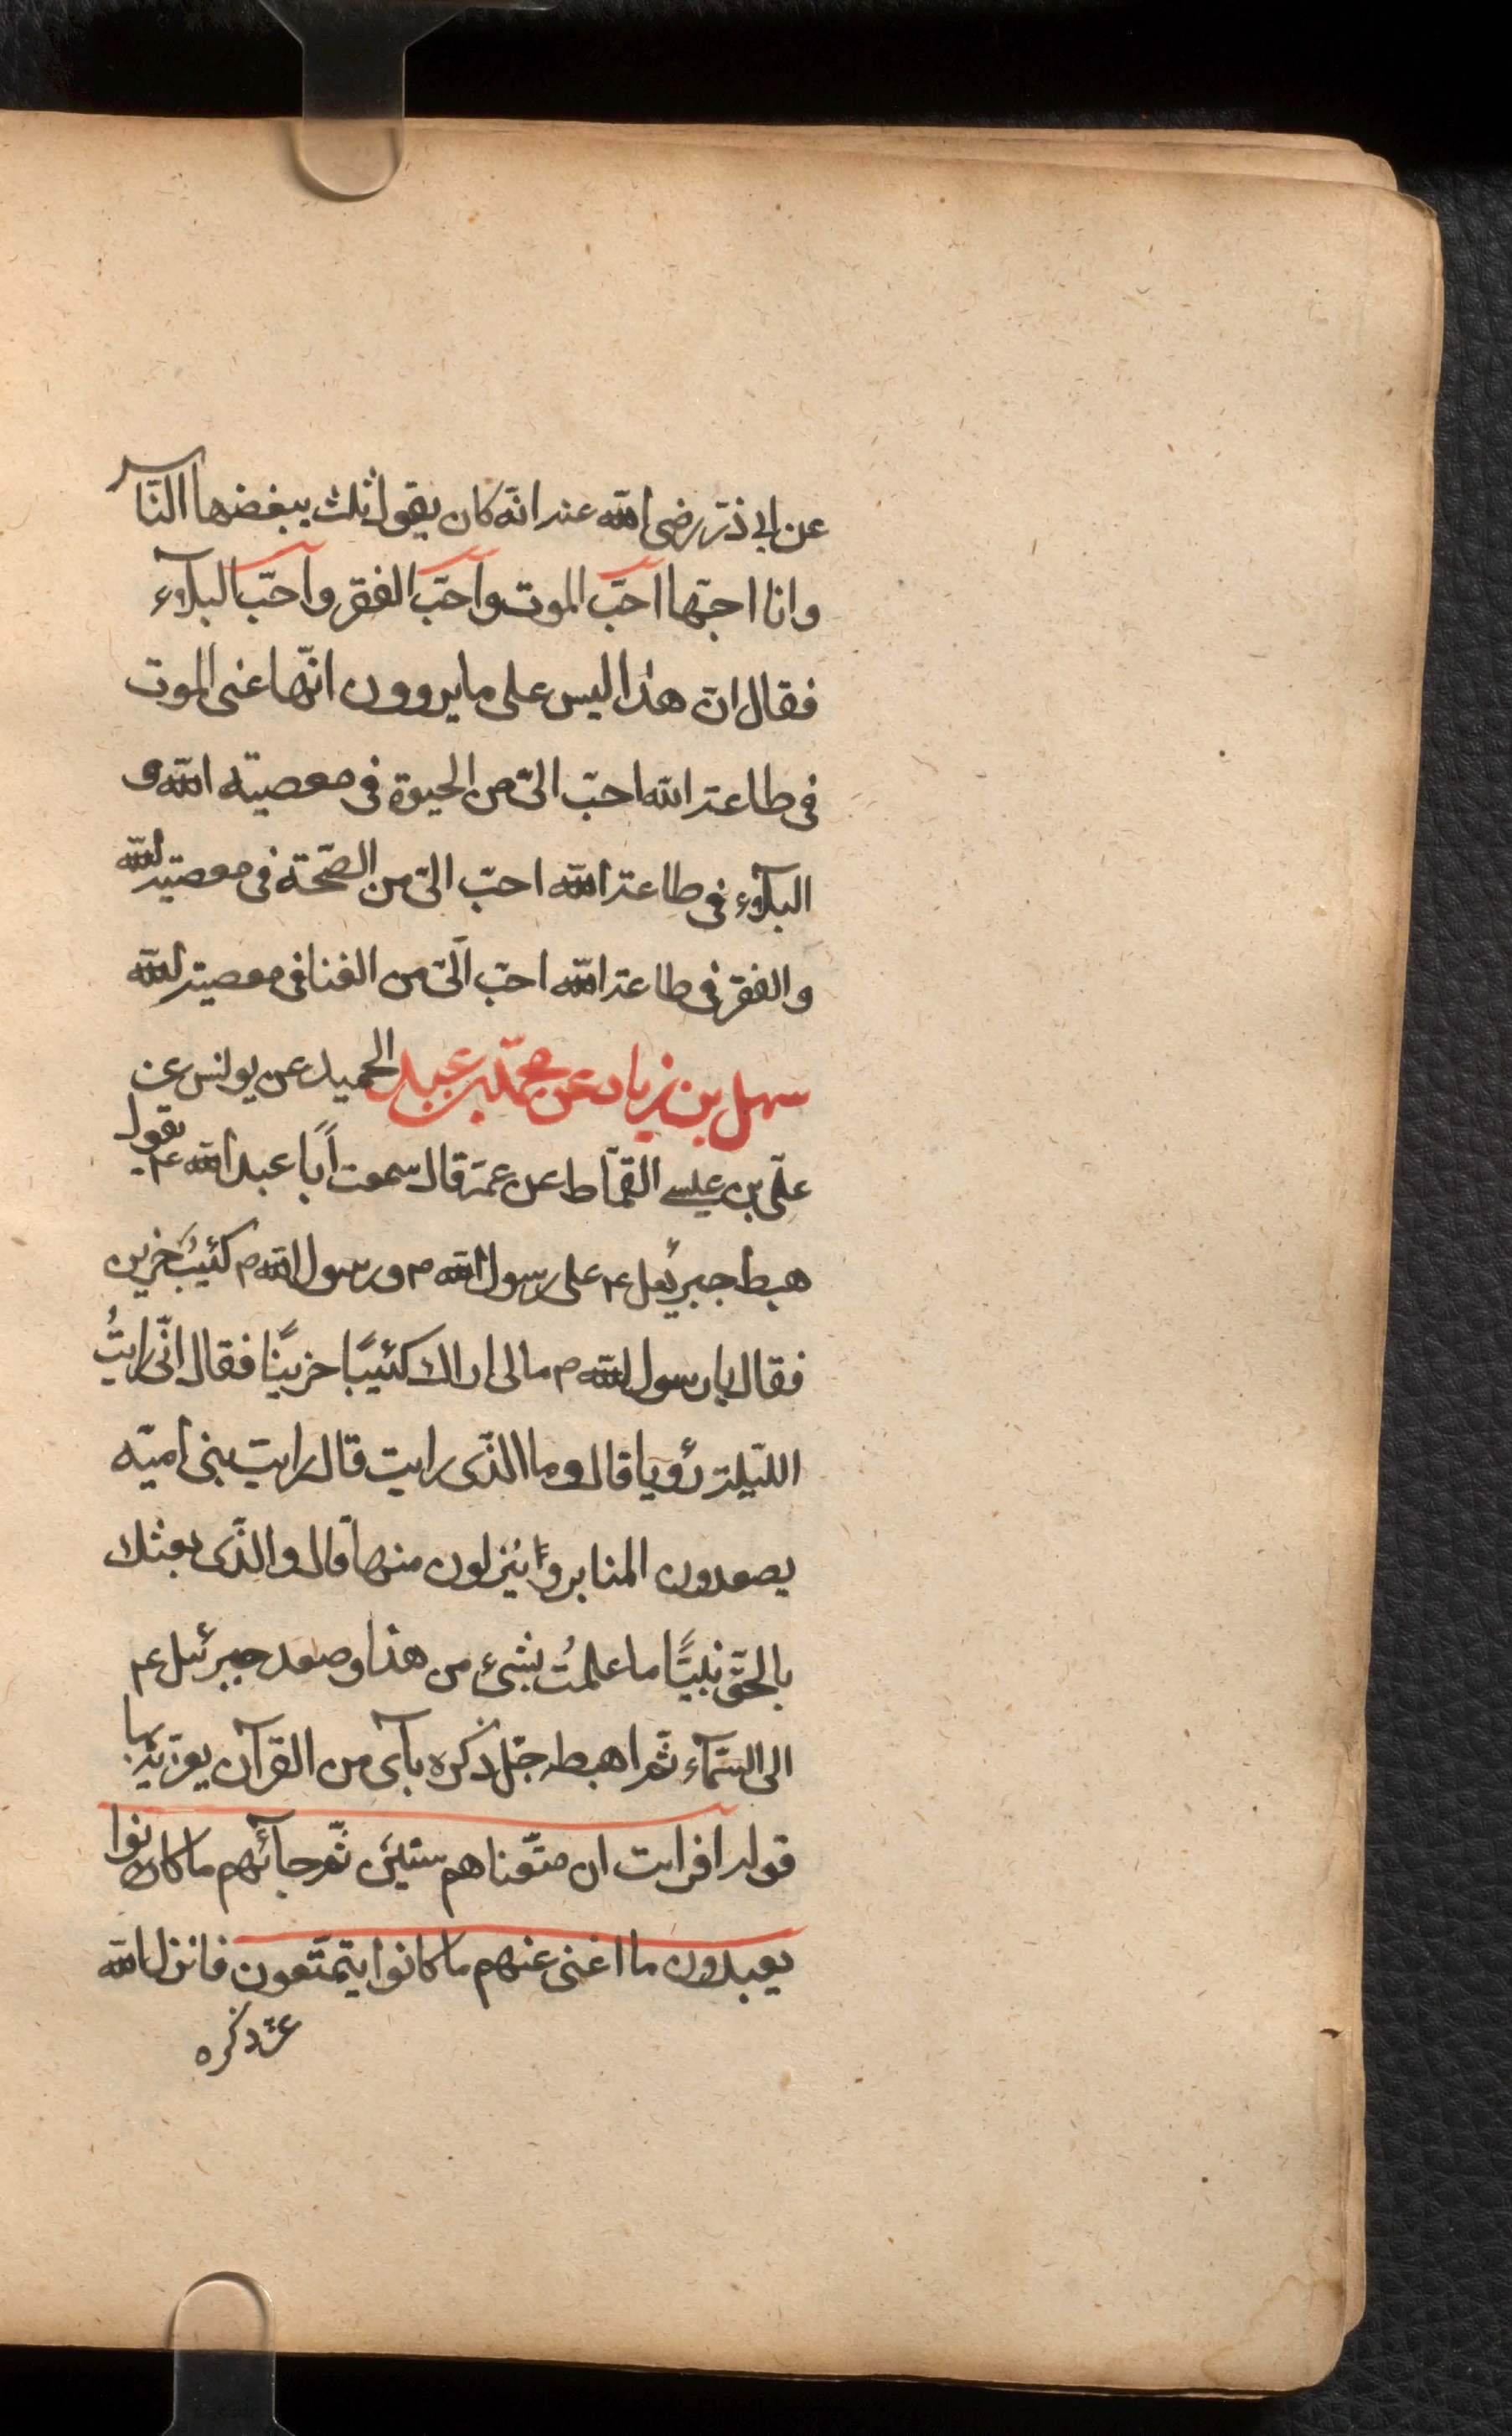 عن ابى ذرّ رضى الله عنه انّه كان يقول ثلث يبغضها النّاس
وانا احبّها احبّ الموت وآحبّ الفقر وآحبّ البلآء
فقال ان هذا ليس على ما يروون انّها عنى الموت
فى طاعة الله احبّ الىّ من الحيوة فى معصيته الله و
البلآء فى طاعة الله احبّ الىّ من الصّحّة فى معصية الله
والفقر فى طاعة الله احبّ الىّ من الغنا فى معصية الله
سهل بن زياد عن محمّد بن عبد الحميد عن يونس عن
علىّ بن عيسى القمّاط عن عمّه قال سمعت اَبا عبد الله ع يقول
هبط جبرئيل ع على رسول الله ص ورسول الله ص كئيبٌ حزين
فقال يا رسول الله ص مالى اراك كئيبًا حزينًا فقال انّى رايتُ
اللّيلة رؤيا قال وما الّذى رايت قال رايت بنى اميّه
يصعدون المنابر و ينزلون منها قال والّذى بعثك
بالحقّ نبيًّا ما علمتُ بشىء من هذا وصعد جبرئيل ع
الى السّمآء ثم اهبط جلّ ذكره بآى من القرآن يعزّيه بها
قوله آفرايت ان متّعناهم سنين ثمّ جآئهم ما كانوا
يعبدون ما اغنى عنهم ما كانوا يتمتّعون فانزل الله
عزّ ذكره